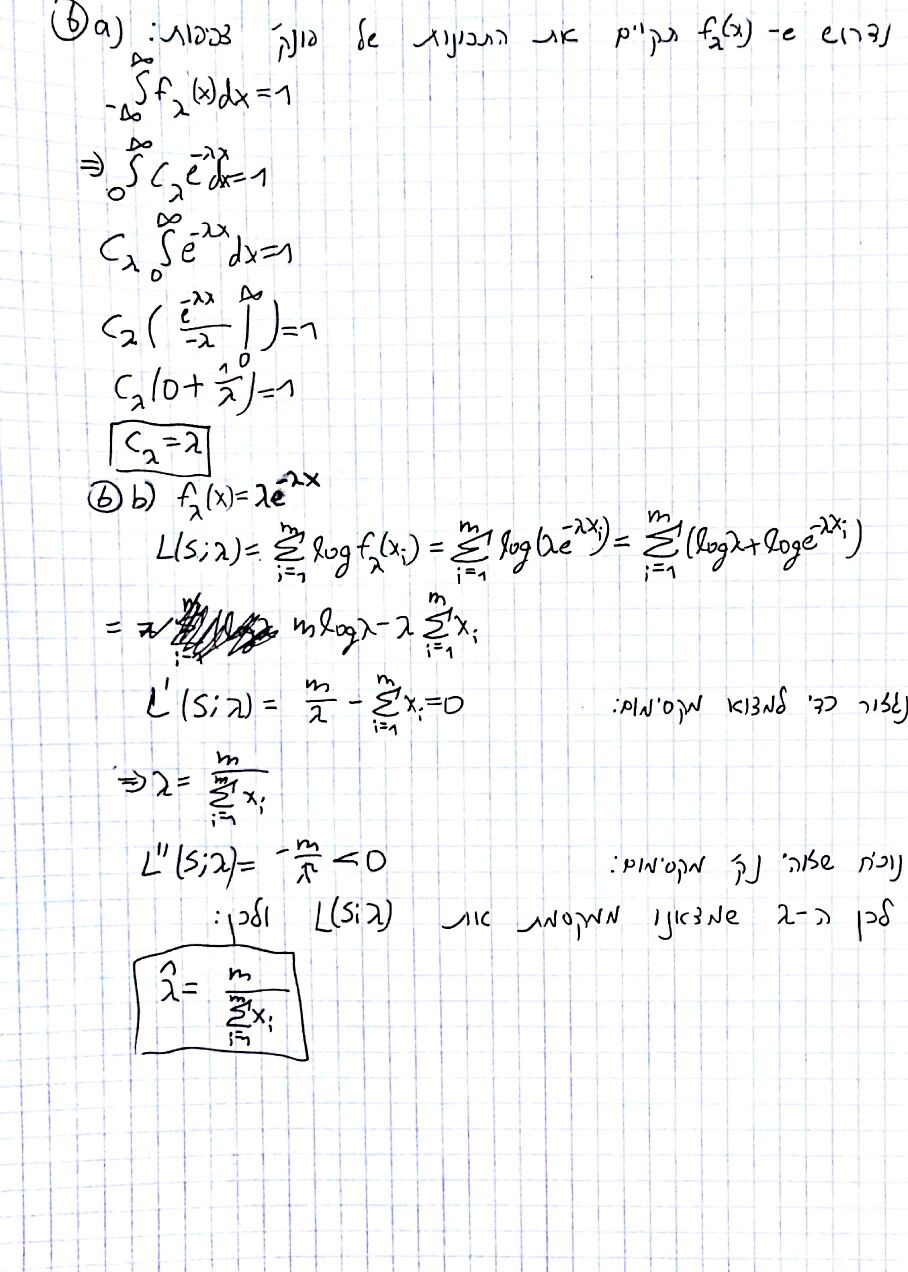 ⑥ a) נדרוש ש- f_λ(x) תקיים את התכונות של פונק' צפיפות:
∫_{-∞}^{∞} f_λ(x)dx=1
⇒ ∫_0^∞ C_λ e^{-λx} dx=1
C_λ ∫_0^∞ e^{-λx} dx=1
C_λ ( e^{-λx}/-λ |_0^∞ )=1
C_λ(0+ 1/λ)=1
C_λ=λ
⑥ b) f_λ(x)=λe^{-λx}
L(S;λ)= Σ_{i=1}^m log f_λ(x_i) = Σ_{i=1}^m log(λe^{-λx_i})= Σ_{i=1}^m (logλ+loge^{-λx_i})
= mlogλ-λ Σ_{i=1}^m x_i
L'(S;λ)= m/λ - Σ_{i=1}^m x_i=0 נגזור כדי למצוא מקסימום:
⇒λ= m/Σ_{i=1}^m x_i
L''(S;λ)= -m/λ² <0 נוכיח שזוהי נק' מקסימום:
לכן ה-λ שמצאנו ממקסמת את L(S;λ) ולכן:
λ̂= m/Σ_{i=1}^m x_i